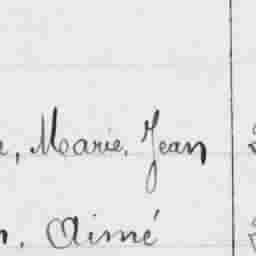 , Marie, Jean
. Aimé